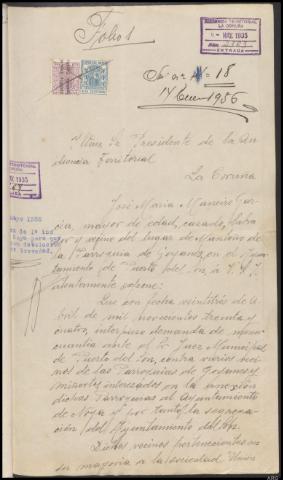 Folios 1
AUDIENCIA TERRITORIAL
LA CORUÑA
MAY. 1935
ENTRADA
18
1936
Presidente de la Au-
diencia Territorial
La Coruña
José María Maneiro Gar-
cía, mayor de edad, casado, labra-
dor y vecino del lugar de
la Parroquia de Goyanes, en el Ayun-
tamiento de Puerto del Son, a V. S. I.
atentamente expone:
Que con fecha veintitrés de A-
bril de mil novecientos treinta y
cuatro, interpuso demanda de menor
cuantía ante el Sr Juez Municipal
de Puerto del Son, contra varios veci-
nos de las Parroquias de Goyanes y
interesados en la anexión
dichas Parroquias al Ayuntamiento
de Noya y por tanto la segrega-
ción del Ayuntamiento del Son.
Dichos vecinos pertenecientes en
su mayoría a la sociedad Unión